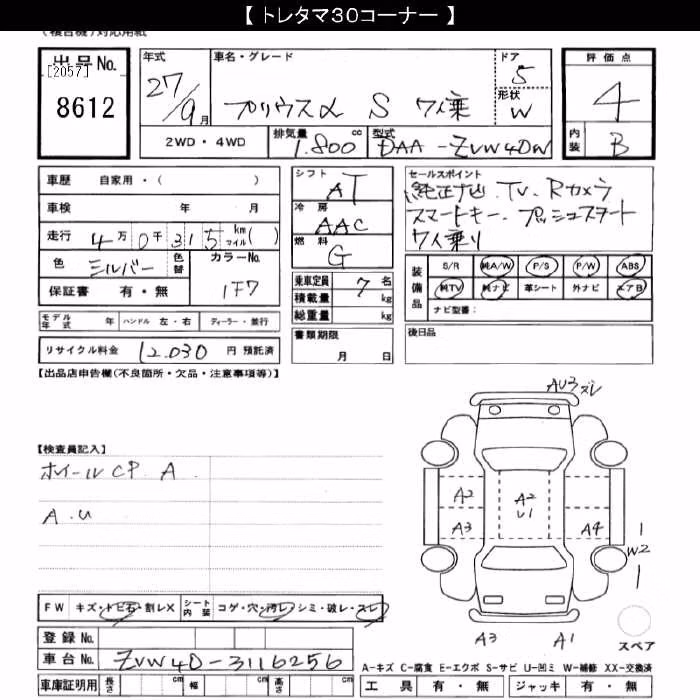 【 トレタマ30コーナー 】
(複合機)対応用紙
出品No.
[2057]
8612
年式
27/9月
車名・グレード
プリウスα S 7人乗
ドア
5
形状
W
評価点
4
内装
B
2WD・4WD
排気量
1.800 cc
型式
DAA-ZVW40W
車歴 自家用・( )
車検 年 月
走行 4万0千315 km マイル( )
色 シルバー 色替 カラーNo.
1F7
保証書 有・無
モデル年式 年 ハンドル 左・右 ディーラー・並行
リサイクル料金 12.030 円 預託済
シフト
AT
冷房
AAC
燃料
G
乗車定員 7 名
積載量 kg
総重量 kg
書類期限
月 日
セールスポイント
純正ナビ.TV.Rカメラ
スマートキー.プッシュスタート
7人乗り
装備品
S/R 純A/W P/S P/W ABS
純TV 純ナビ 革シート 外ナビ エアB
ナビ型番:
後日品
【出品店申告欄(不良箇所・欠品・注意事項等)】
【検査員記入】
ホイールCP A
A.U
AU3 ズレ
A2
A3
A2
U1
A4
W2
A3
A1
スペア
FW キズ・トビ石・割レX シート内装 コゲ・穴・汚レ・シミ・破レ・スレ
登録No.
車台No. ZVW40-3116256
車庫証明用 長さ cm 幅 cm 高さ cm
A-キズ C-腐食 E-エクボ S-サビ U-凹ミ W-補修 XX-交換済
工具 有・無 ジャッキ 有・無